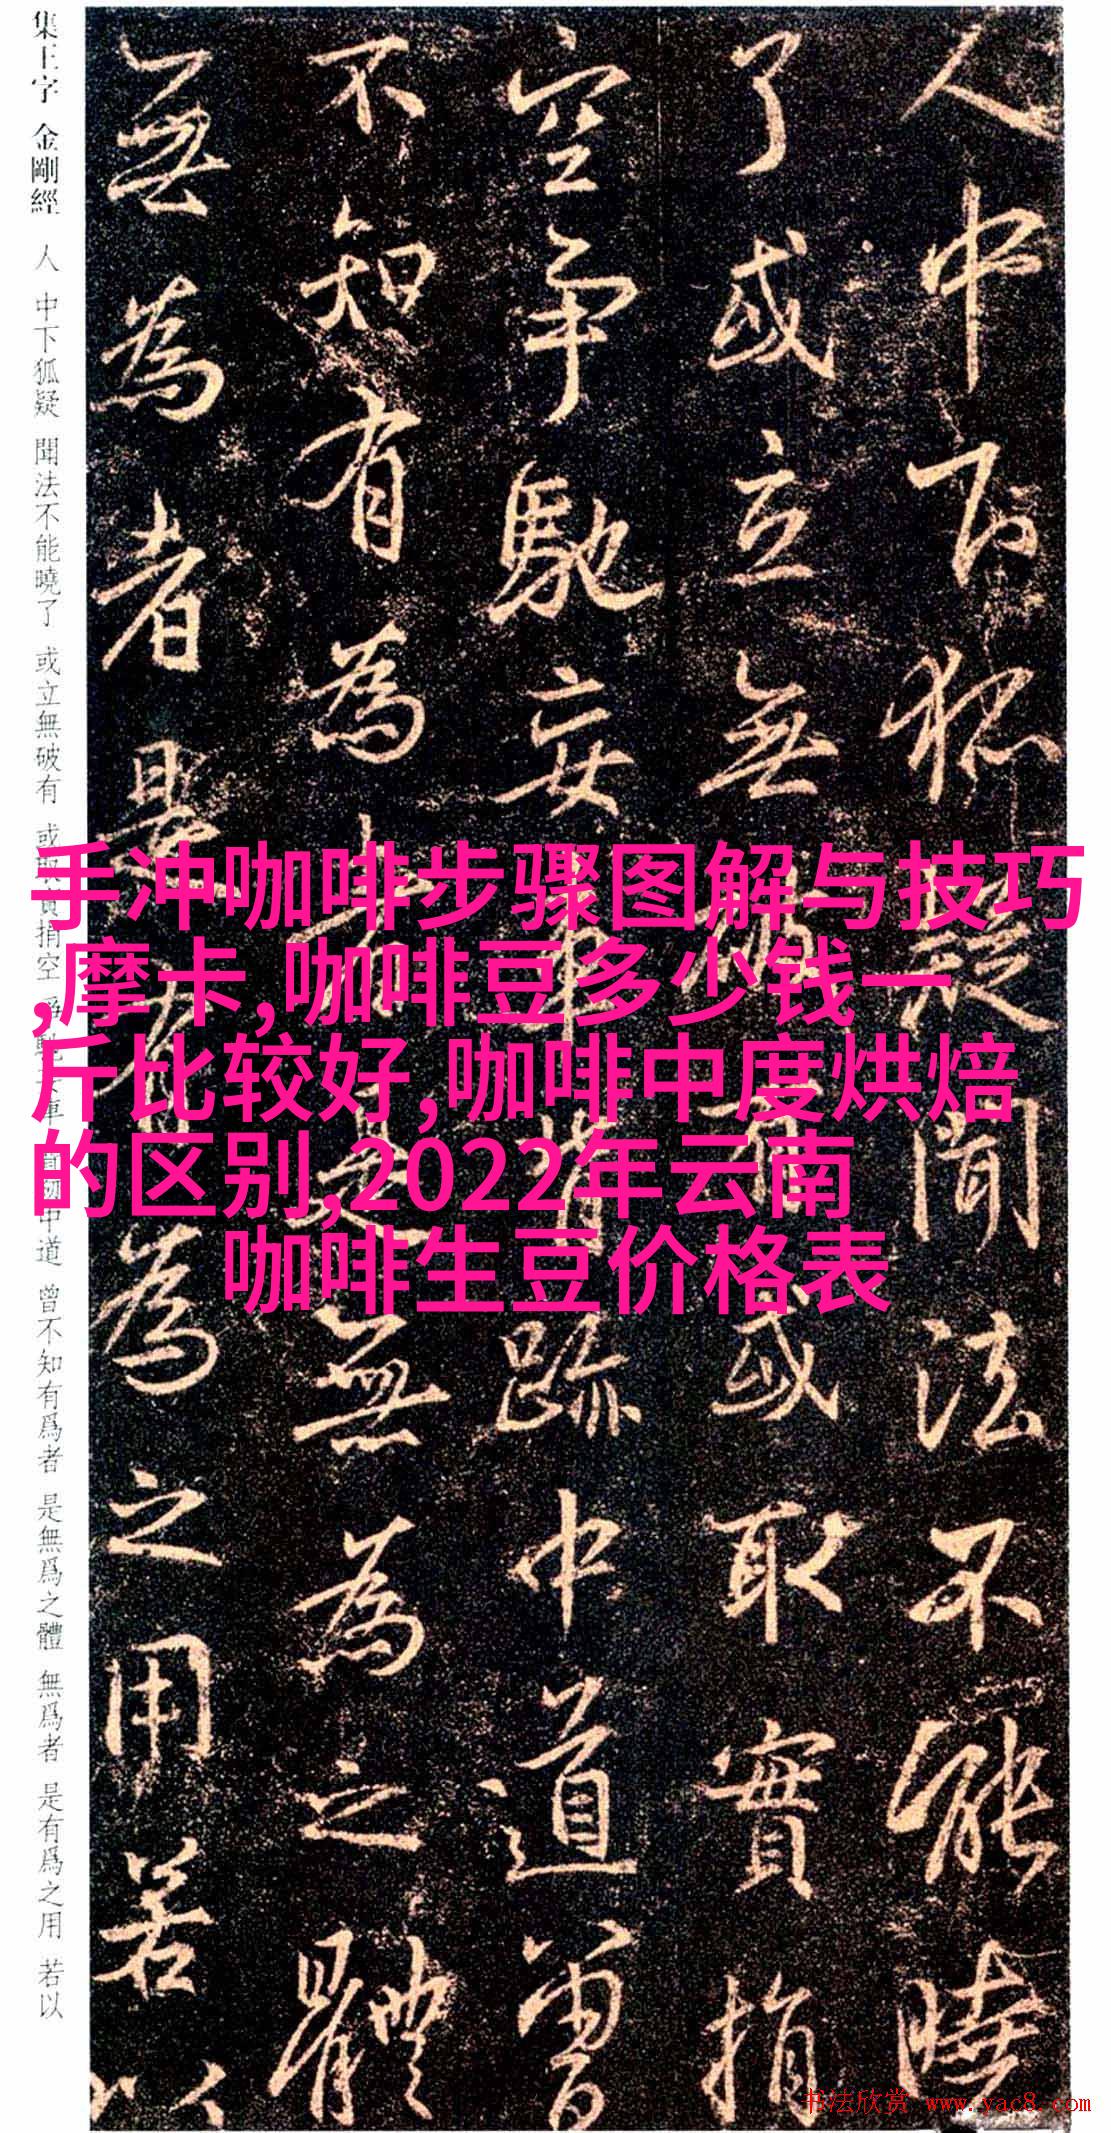 人中下狐疑聞法不能曉
了或立無破有或取實捐
空爭馳妄車皆跡中道曾
不知有為者是無為之體
無為者是有為之用若以
集王字 金剛經 人 中下狐疑 聞法不能曉了 或立無破有 或取實捐空 爭馳 車 中道 曾不知有爲者 是無爲之體 無爲者 是有爲之用 若以
手冲咖啡步骤图解与技巧
,摩卡,咖啡豆多少钱一
斤比较好,咖啡中度烘焙
的区别,2022年云南
咖啡生豆价格表
书法欣赏 www.yac8.com